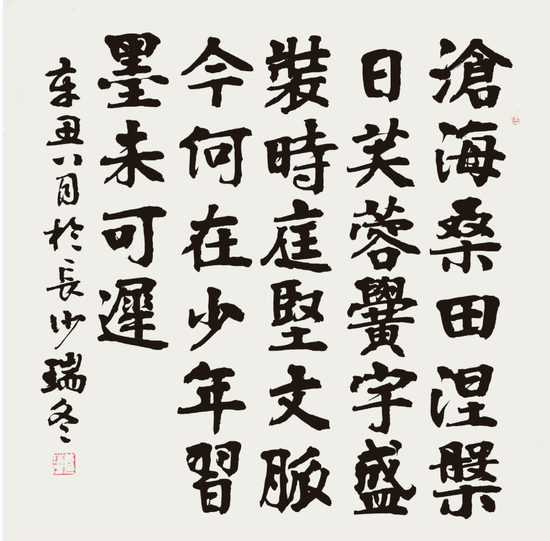 滄海桑田涅槃
日芙蓉黌宇盛
裝時庭堅文脈
今何在少年習
墨未可遲
辛丑八月於長沙瑞冬